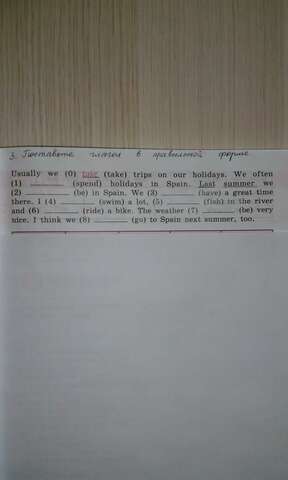 3. Поставьте глагол в правильной форме
Usually we (0) take (take) trips on our holidays. We often
(1) ________ (spend) holidays in Spain. Last summer we
(2) ________ (be) in Spain. We (3) ________ (have) a great time
there. I (4) ________ (swim) a lot, (5) ________ (fish) in the river
and (6) ________ (ride) a bike. The weather (7) ________ (be) very
nice. I think we (8) ________ (go) to Spain next summer, too.